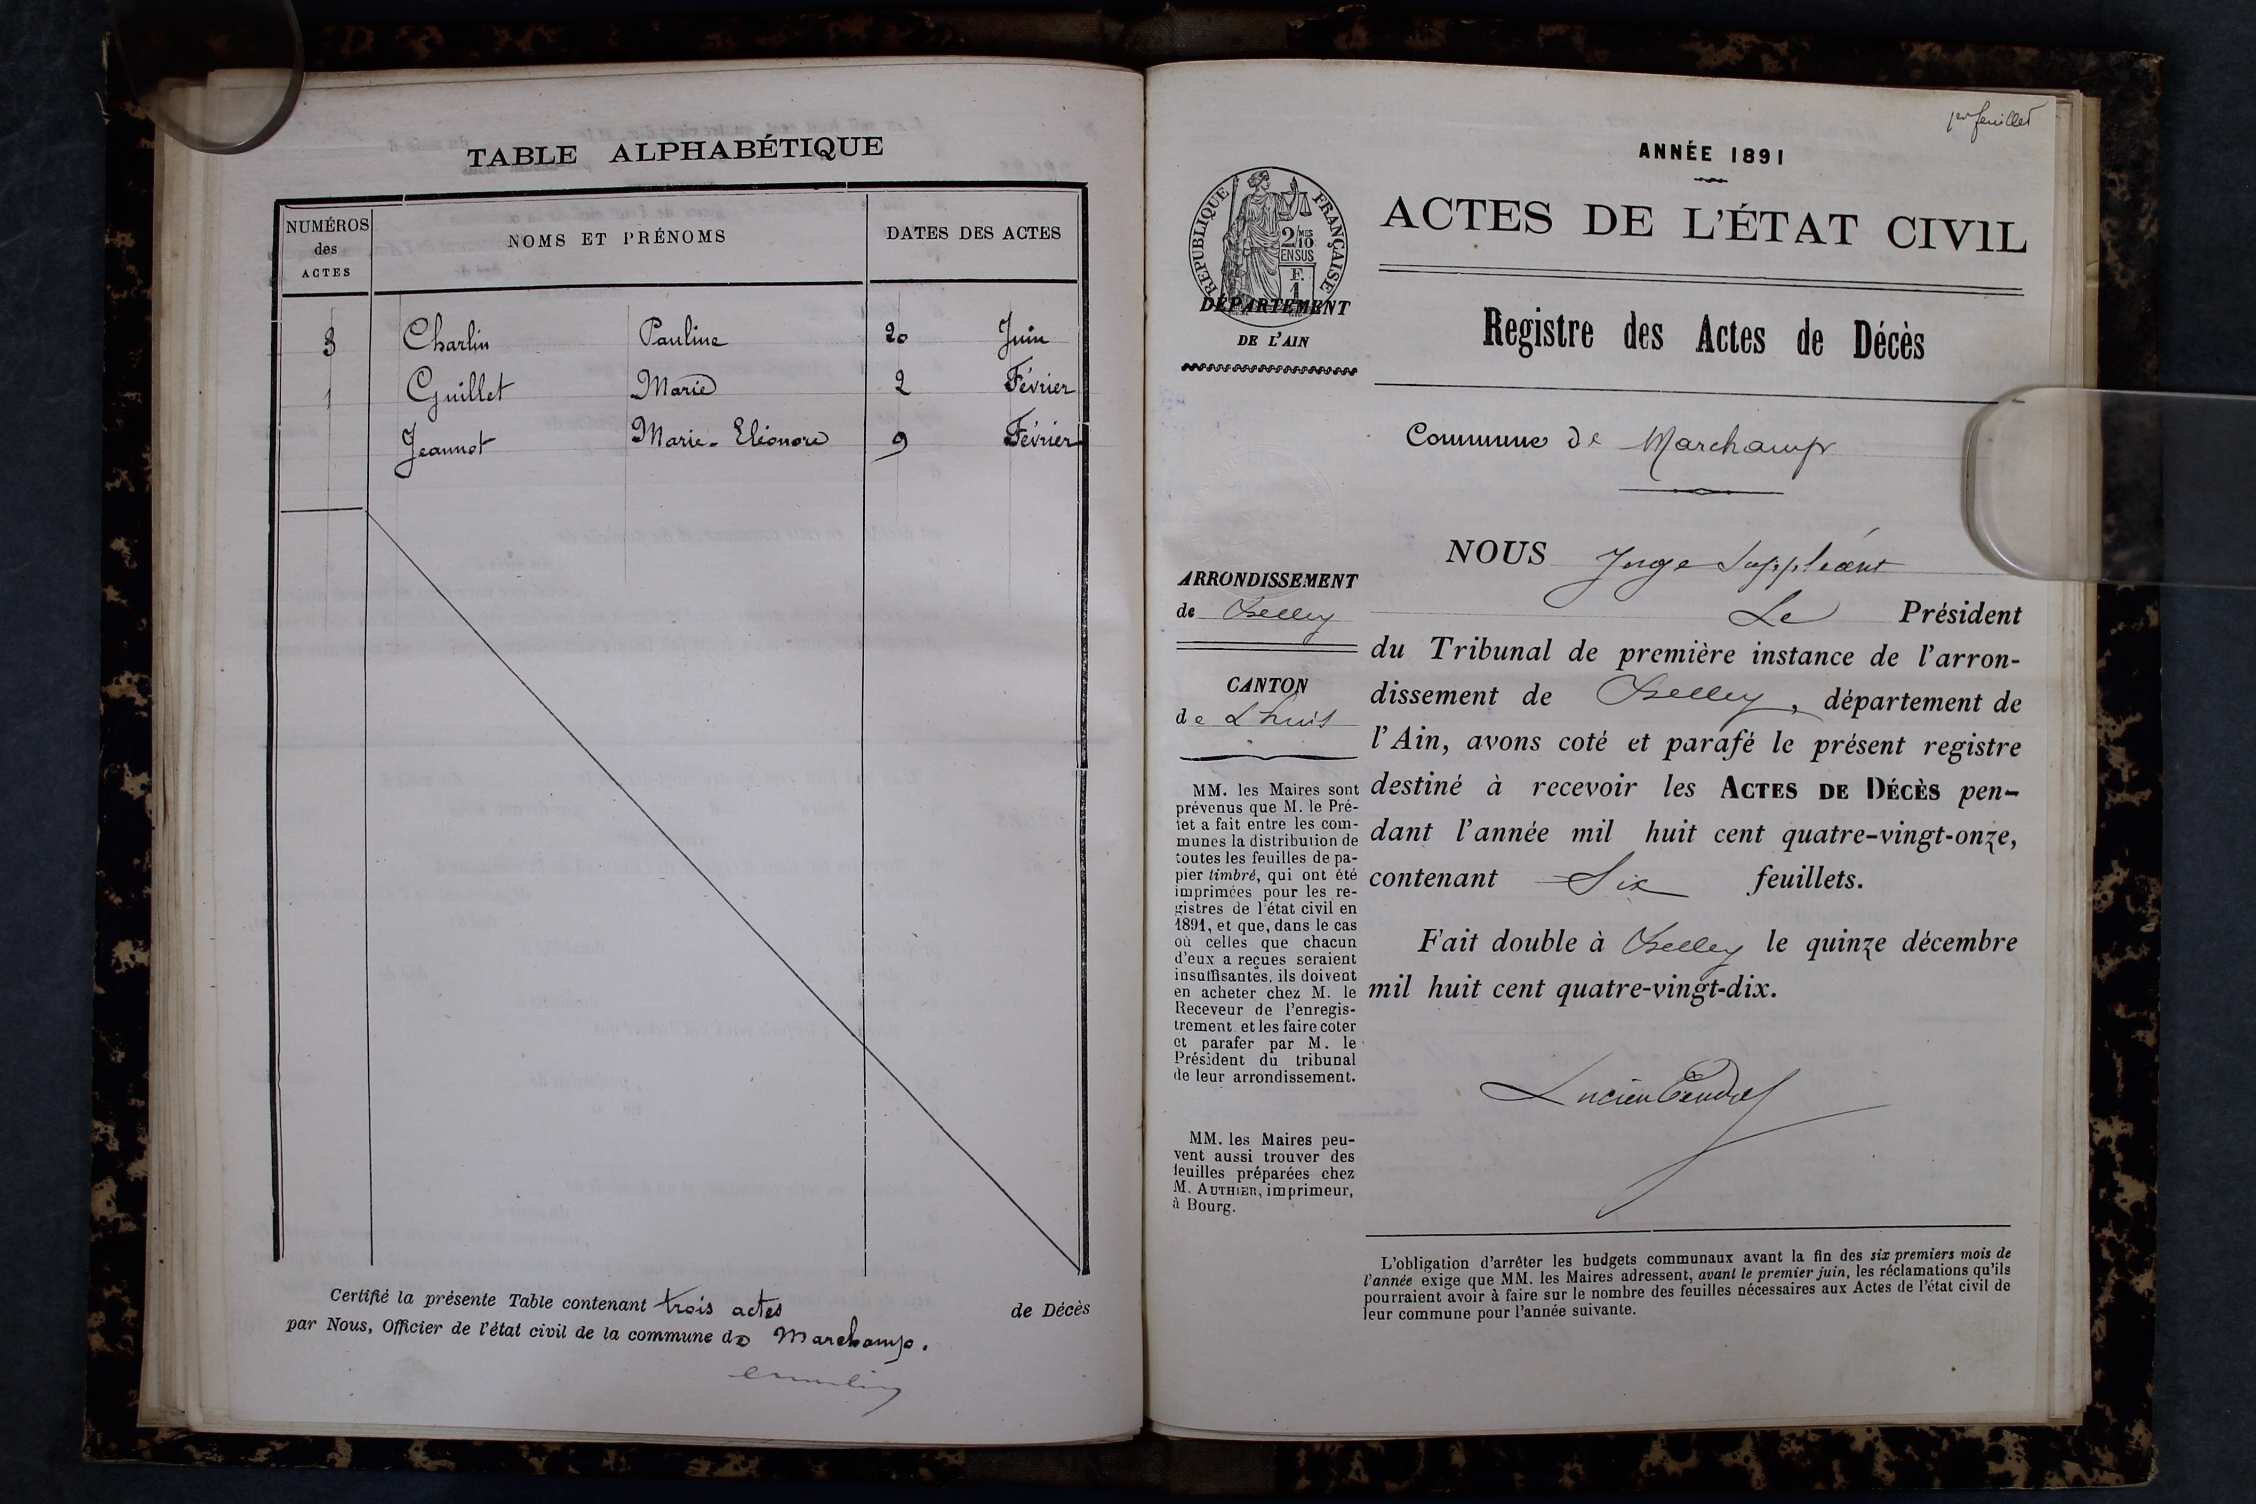 TABLE ALPHABÉTIQUE
NUMÉROS
des
ACTES
NOMS ET PRÉNOMS
DATES DES ACTES
3 Charlin Pauline 20 Juin
1 Guillet Marie 2 Février
Jeannot Marie-Eléonore 9 Février
Certifié la présente Table contenant trois actes de Décès
par Nous, Officier de l'état civil de la commune de Marchamp.
1er feuillet
ANNÉE 1891
ACTES DE L'ÉTAT CIVIL
RÉPUBLIQUE FRANÇAISE
2 MES
10
EN SUS
F.
1
DÉPARTEMENT
DE L'AIN
Registre des Actes de Décès
Commune de Marchamp
ARRONDISSEMENT
de Belley
CANTON
de Lhuis
MM. les Maires sont
prévenus que M. le Pré-
fet a fait entre les com-
munes la distribution de
toutes les feuilles de pa-
pier timbré, qui ont été
imprimées pour les re-
gistres de l'état civil en
1891, et que, dans le cas
où celles que chacun
d'eux a reçues seraient
insuffisantes, ils doivent
en acheter chez M. le
Receveur de l'enregis-
trement et les faire coter
et parafer par M. le
Président du tribunal
de leur arrondissement.
MM. les Maires peu-
vent aussi trouver des
feuilles préparées chez
M. AUTHIER, imprimeur,
à Bourg.
NOUS Juge Suppléant
Le Président
du Tribunal de première instance de l'arron-
dissement de Belley, département de
l'Ain, avons coté et parafé le présent registre
destiné à recevoir les ACTES DE DÉCÈS pen-
dant l'année mil huit cent quatre-vingt-onze,
contenant Six feuillets.
Fait double à Belley le quinze décembre
mil huit cent quatre-vingt-dix.
Lucien
L'obligation d'arrêter les budgets communaux avant la fin des six premiers mois de
l'année exige que MM. les Maires adressent, avant le premier juin, les réclamations qu'ils
pourraient avoir à faire sur le nombre des feuilles nécessaires aux Actes de l'état civil de
leur commune pour l'année suivante.